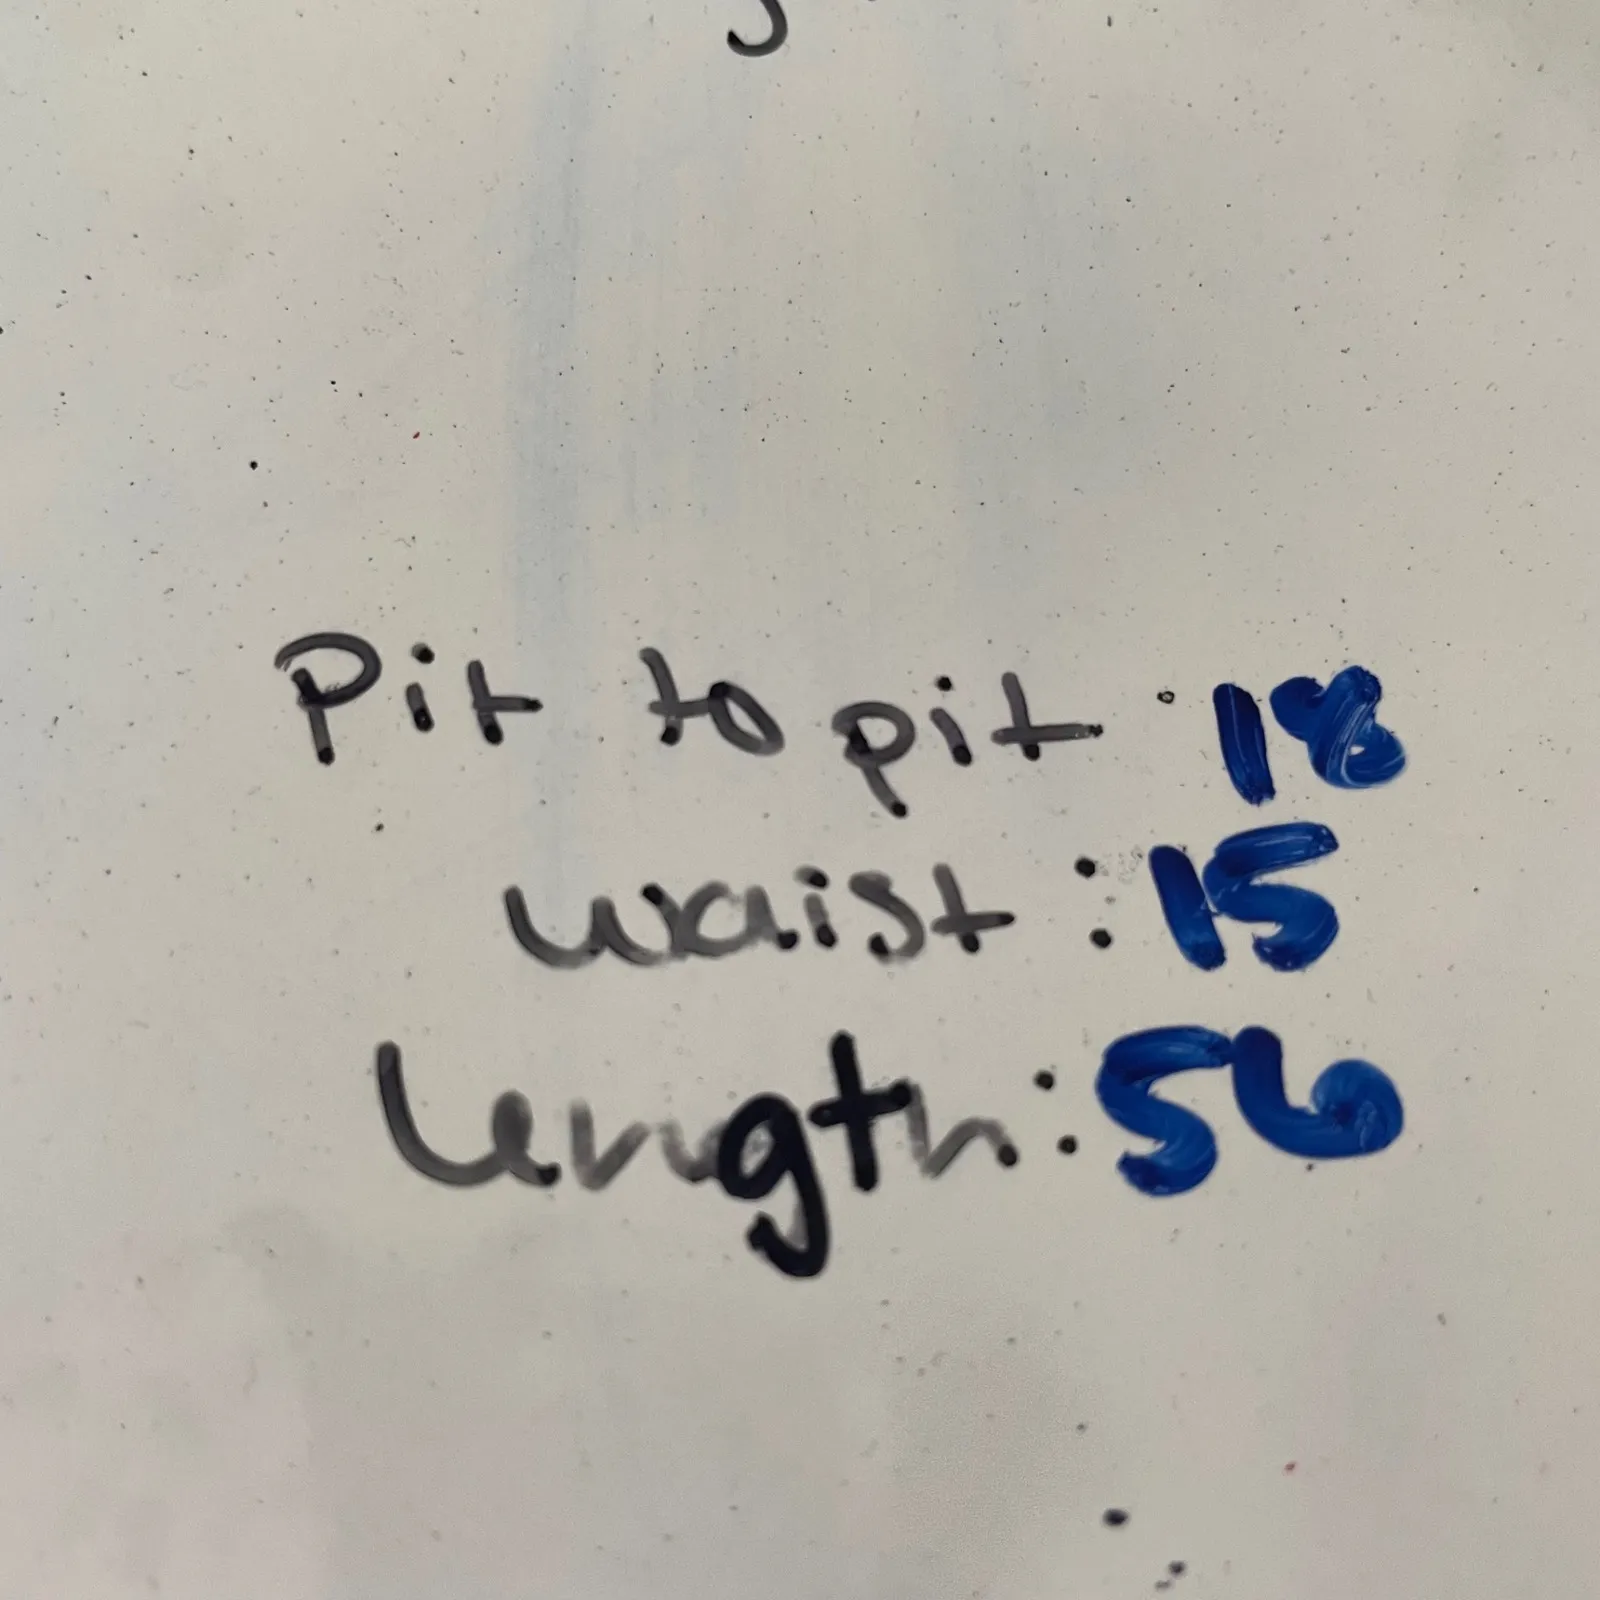 Pit to pit : 18
waist : 15
length : 56